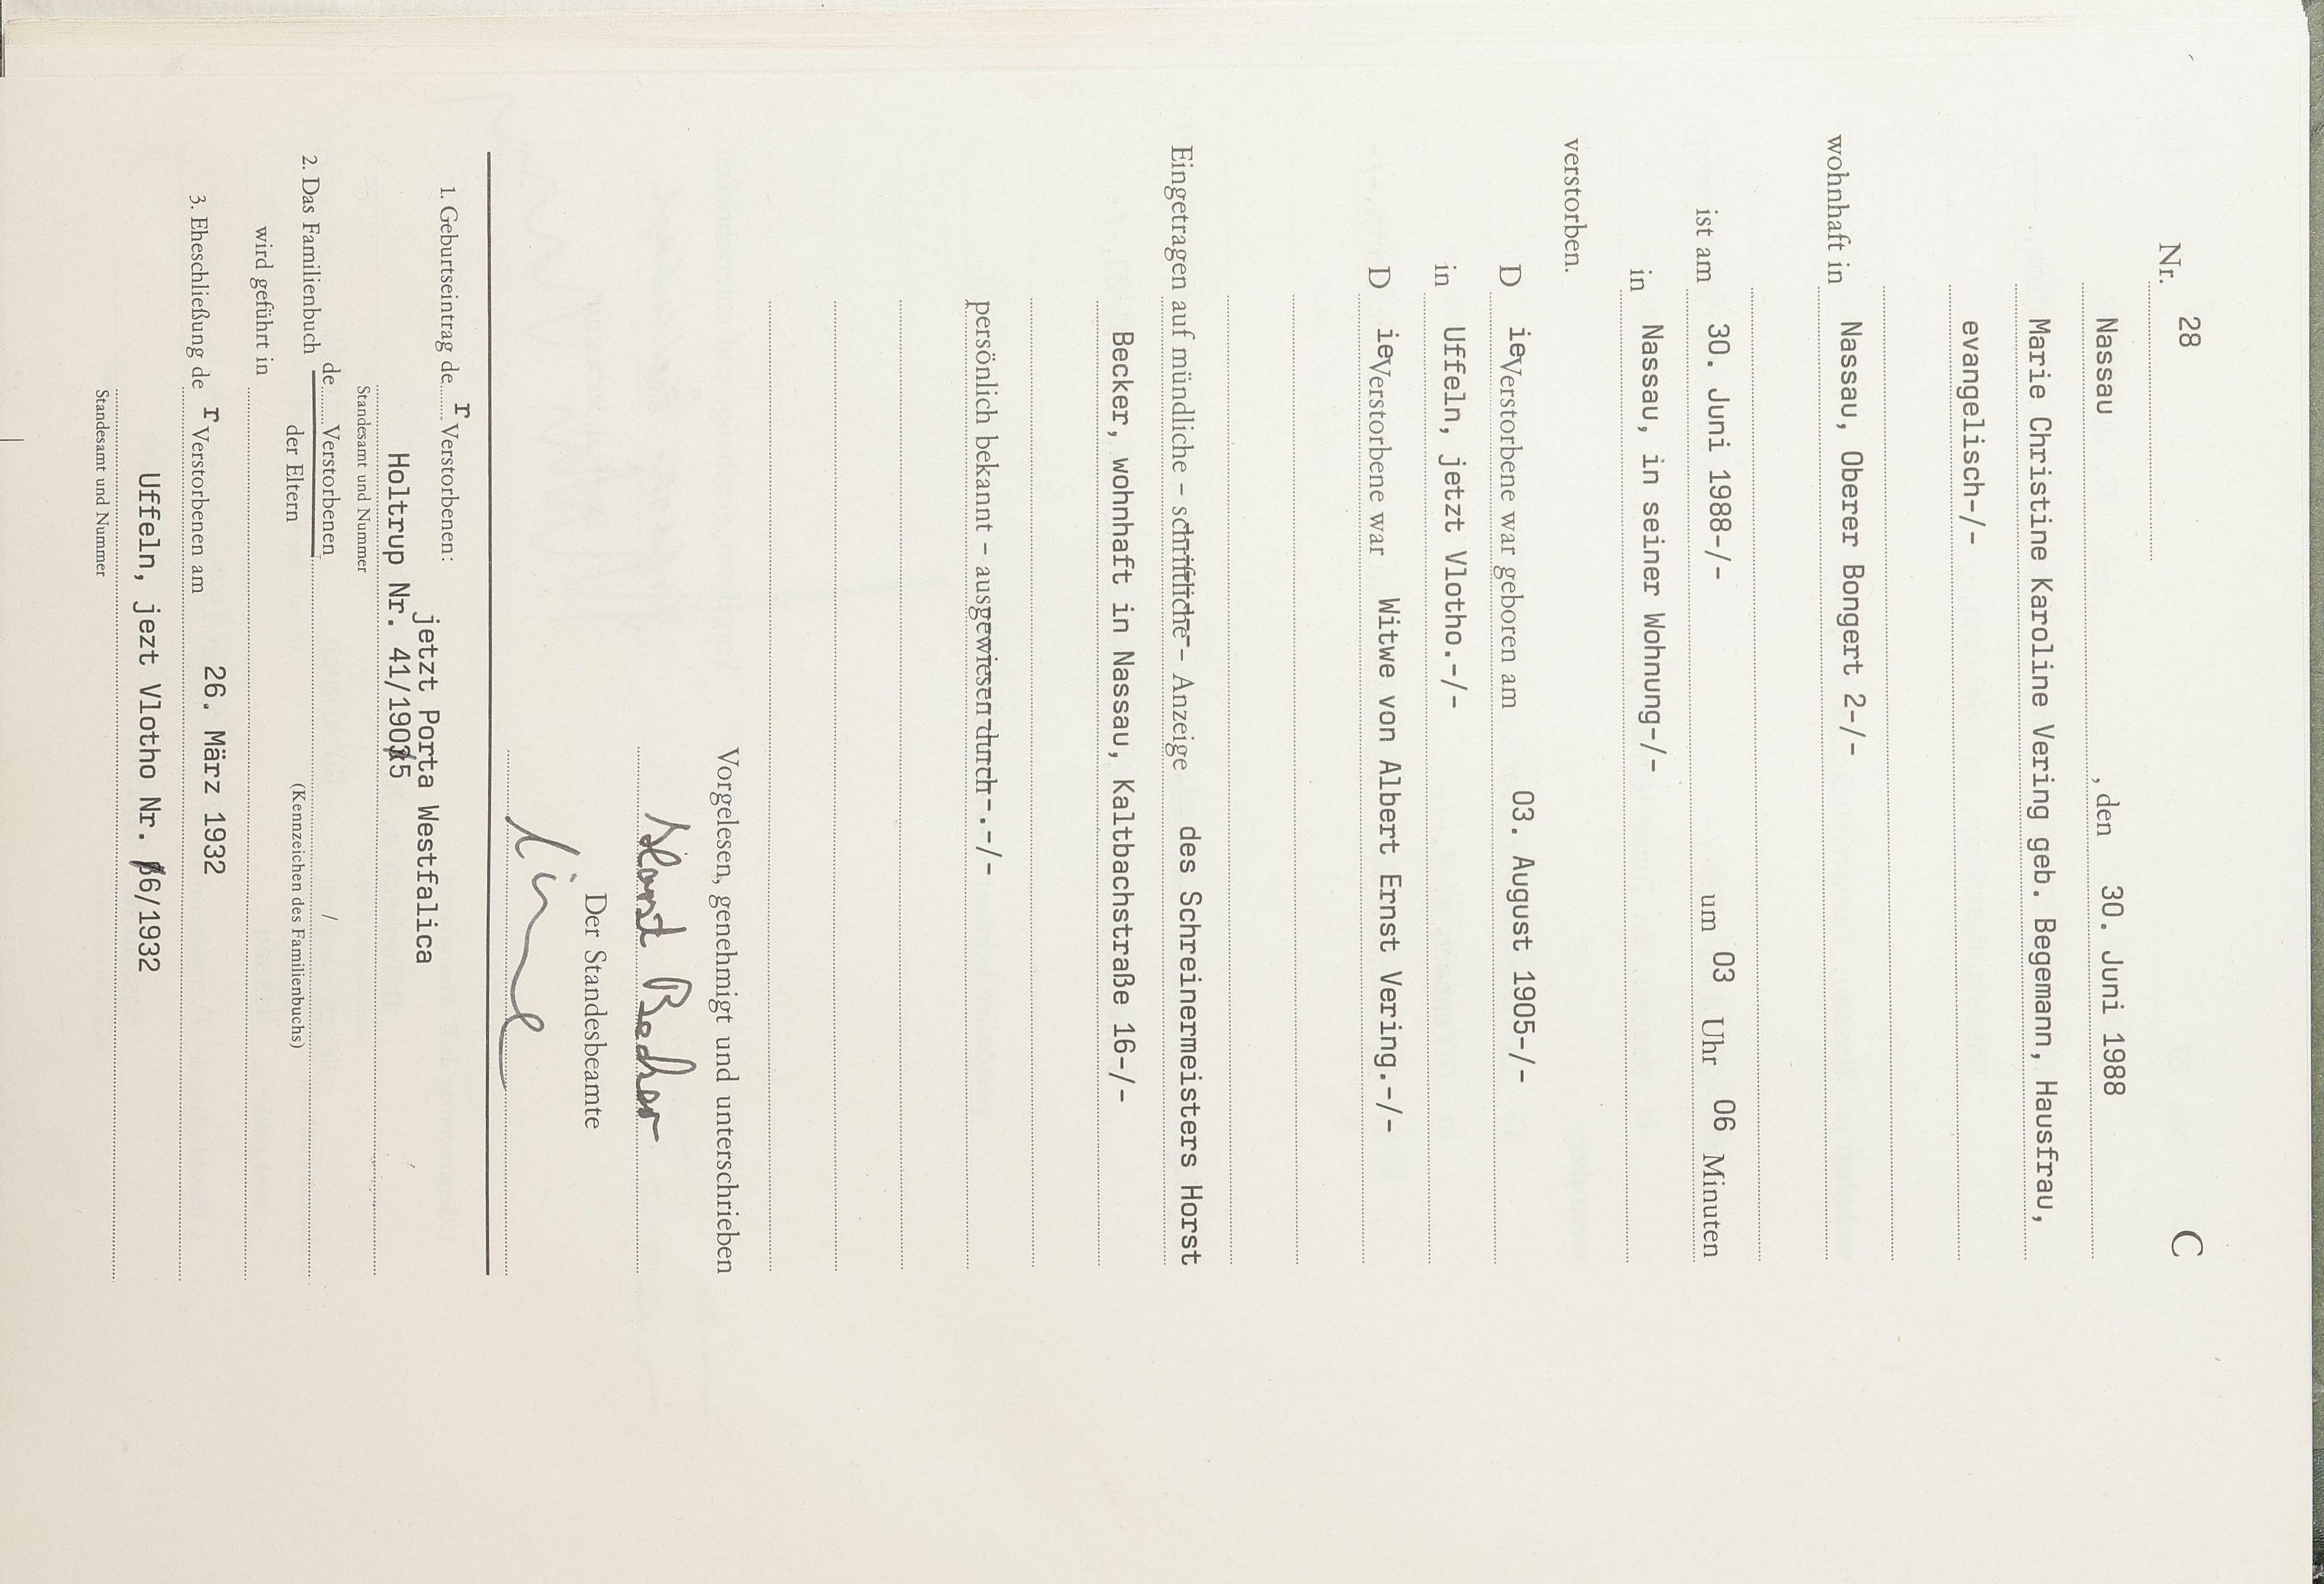 C
Nr. 28
Nassau , den 30. Juni 1988
Marie Christine Karoline Vering geb. Begemann, Hausfrau,
evangelisch-/-
wohnhaft in Nassau, Oberer Bongert 2-/-
ist am 30. Juni 1988-/- um 03 Uhr 06 Minuten
in Nassau, in seiner Wohnung-/-
verstorben.
D ieVerstorbene war geboren am 03. August 1905-/-
in Uffeln, jetzt Vlotho.-/-
D ieVerstorbene war Witwe von Albert Ernst Vering.-/-
Eingetragen auf mündliche - schriftliche - Anzeige des Schreinermeisters Horst
Becker, wohnhaft in Nassau, Kaltbachstraße 16-/-
persönlich bekannt - ausgewiesen durch-.-/-
Vorgelesen, genehmigt und unterschrieben
Horst Becker
Der Standesbeamte
1. Geburtseintrag de r Verstorbenen:
jetzt Porta Westfalica
Holtrup Nr. 41/1905
Standesamt und Nummer
2. Das Familienbuch de Verstorbenen /
der Eltern (Kennzeichen des Familienbuchs)
wird geführt in
3. Eheschließung de r Verstorbenen am 26. März 1932
Uffeln, jezt Vlotho Nr. 6/1932
Standesamt und Nummer